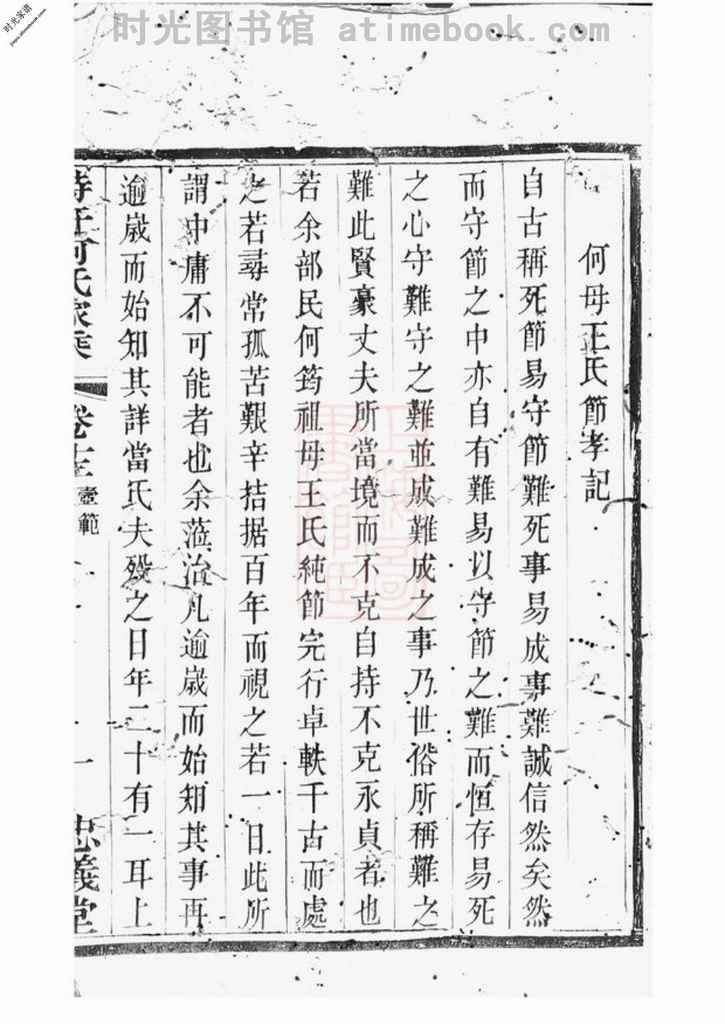 时光图书馆 atimebook.com
时光家谱
何母王氏節孝記
自古稱死節易守節難死事易成事難誠信然矣然
而守節之中亦自有難易以守節之難而恒存易死
之心守難守之難並成難成之事乃世俗所稱難之
難此賢豪丈夫所當境而不克自持不克永貞者也
若余部民何筠祖母王氏純節完行卓軼千古而處
之若尋常孤苦艱辛拮据百年而視之若一日此所
謂中庸不可能者也余蒞治凡逾歲而始知其事再
逾歲而始知其詳當氏夫殁之日年二十有一耳上
何氏家乘 卷十三 壼範 一 忠義堂